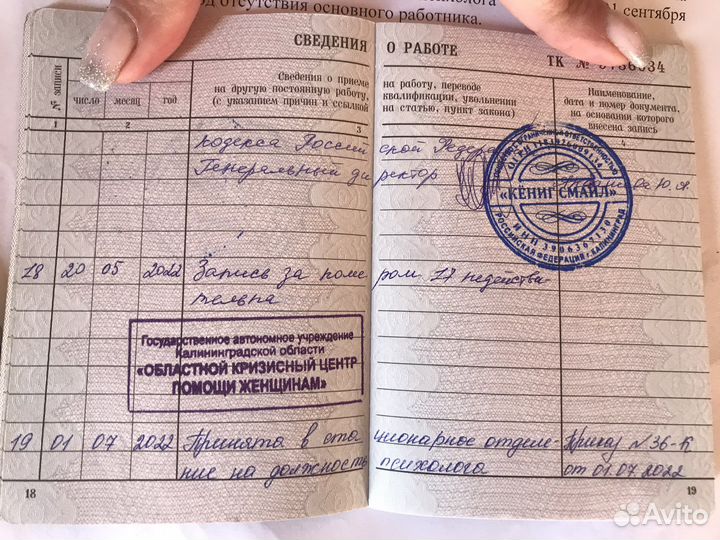 отсутствия основного работника.
1 сентября
СВЕДЕНИЯ О РАБОТЕ
ТК №
№ записи
число месяц год
Сведения о приеме
на другую постоянную работу,
(с указанием причин и ссылкой
на работу, переводе
квалификации, увольнении
на статью, пункт закона)
Наименование,
дата и номер документа,
на основании которого
внесена запись
1 2 3 4
кодекса Российской
Генеральный директор Ю.А
«КЕНИГСМАЙЛ»
РОССИЙСКАЯ ФЕДЕРАЦИЯ г. КАЛИНИНГРАД
18 20 05 2022 Запись за номе ром 17 недействи-
тельна
Государственное автономное учреждение
Калининградской области
«ОБЛАСТНОЙ КРИЗИСНЫЙ ЦЕНТР
ПОМОЩИ ЖЕНЩИНАМ»
19 01 07 2022 Принята в ста ционарное отделе- Приказ №36-К
ние на должность психолога от 01.07.2022
18
19
Avito